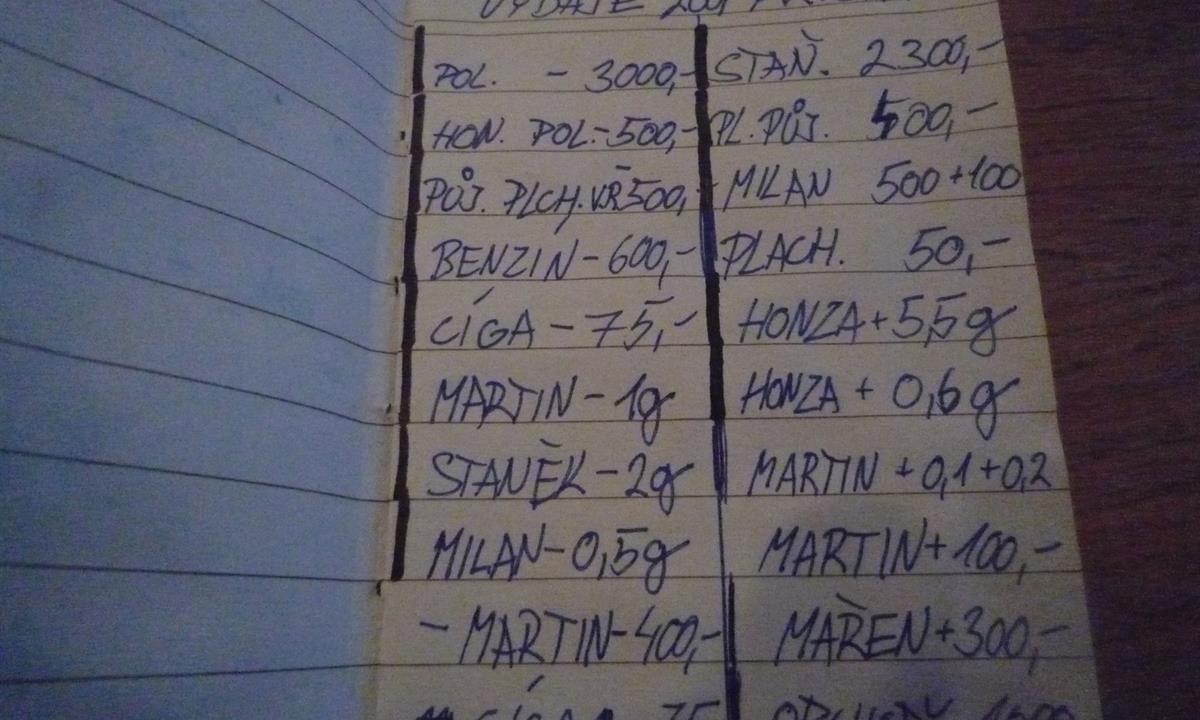 POL. - 3000,- STAŇ. 2300,-
HON. POL.-500,- PL.PŮJ. 500,-
PŮJ. PLCH.VŘ500,- MILAN 500+100
BENZIN-600,- PLACH. 50,-
CÍGA-75,- HONZA+5,5g
MARTIN-1g HONZA+0,6g
STANĚK-2g MARTIN+0,1+0,2
MILAN-0,5g MARTIN+100,-
- MARTIN-400,- MAŘEN+300,-